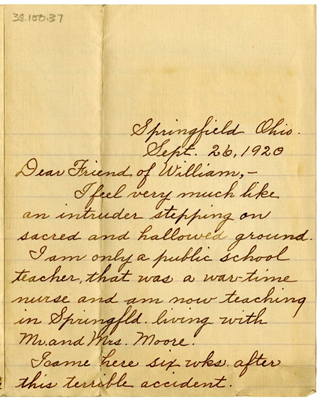 38.100.37
Springfield Ohio.
Sept. 26, 1920
Dear Friend of William,-
I feel very much like
an intruder stepping on
sacred and hallowed ground.
I am only a public school
teacher, that was a war-time
nurse and am now teaching
in Springfld. living with
Mr. and Mrs. Moore.
I came here six wks. after
this terrible accident.